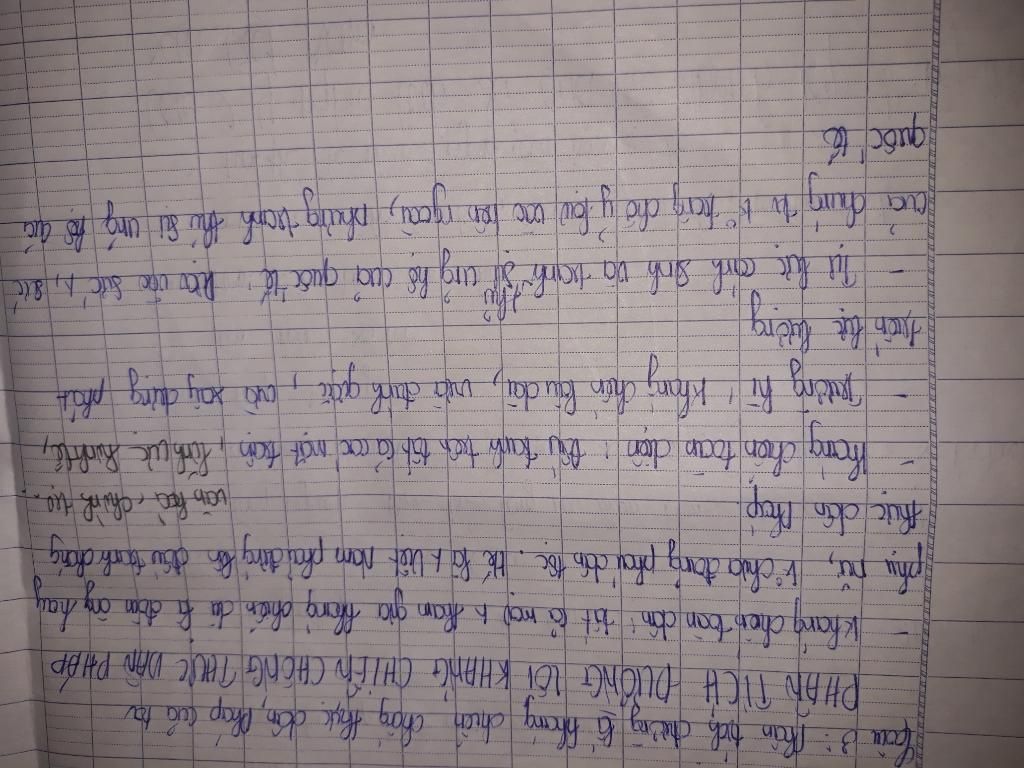 Câu 3: Phân tích đường lối kháng chiến chống thực dân Pháp của ta
PHÂN TÍCH ĐƯỜNG LỐI KHÁNG CHIẾN CHỐNG THỰC DÂN PHÁP
- Kháng chiến toàn dân: tất cả mọi tham gia kháng chiến dù là đàn ông hay
phụ nữ, chia đảng phái dân tộc. Hễ là Việt Nam phải đứng lên đấu tranh chống
thực dân Pháp.
- Kháng chiến toàn diện: Đấu tranh trên tất cả các mặt trận, lĩnh vực kinh tế,
văn hoá, chính trị...
- Trường kì: kháng chiến lâu dài, vừa đánh giặc, vừa xây dựng phát
triển lực lượng
- Tự lực cánh sinh và tranh thủ sự ủng hộ của quốc tế: Dựa vào sức, sức
của chúng ta trông chờ ỷ lại vào bên ngoài, nhưng tranh thủ sự ủng hộ của
quốc tế